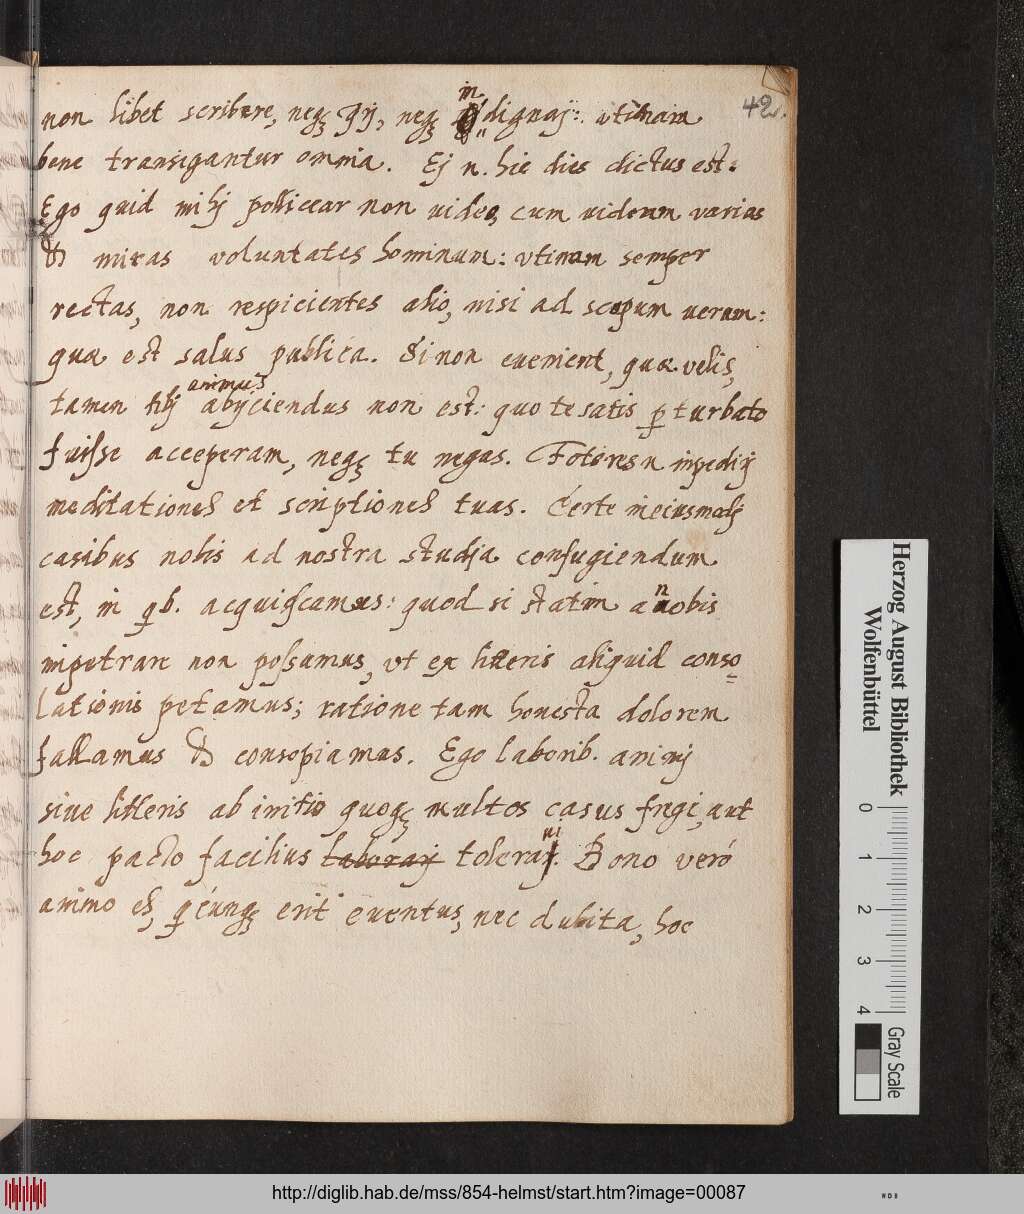 42.
non libet scribere, neq₃ qrj, neq₃ indignaj: vtinam
bene transigantur omnia. Ej n. hic dies dictus est:
Ego quid mihj pollicear non video, cum videam varias
& miras voluntates hominum: vtinam semper
rectas, non respicientes alio, nisi ad scopum verum:
quæ est salus publica. Si non evenient, quæ velis,
tamen tibj animus abijciendus non est: quo te satis pturbato
fuisse acceperam, neq₃ tu negas. impedij
meditationes et scriptiones tuas. Certe in eiusmodj
casibus nobis ad nostra studia confugiendum
est, in qb. acquiescamus: quod si statim a nobis
impetrare non possumus, vt ex litteris aliquid conso=
lationis petamus; ratione tam honesta dolorem
fallamus & consopiamus. Ego laborib. animj
siue litteris ab initio quoq₃ multos casus fregi, aut
hoc pacto facilius laboraj toleraui. Bono veró
animo es, qcunq₃ erit euentus, nec dubita, hoc
Herzog August Bibliothek
Wolfenbüttel
0 1 2 3 4
Gray Scale
http://diglib.hab.de/mss/854-helmst/start.htm?image=00087